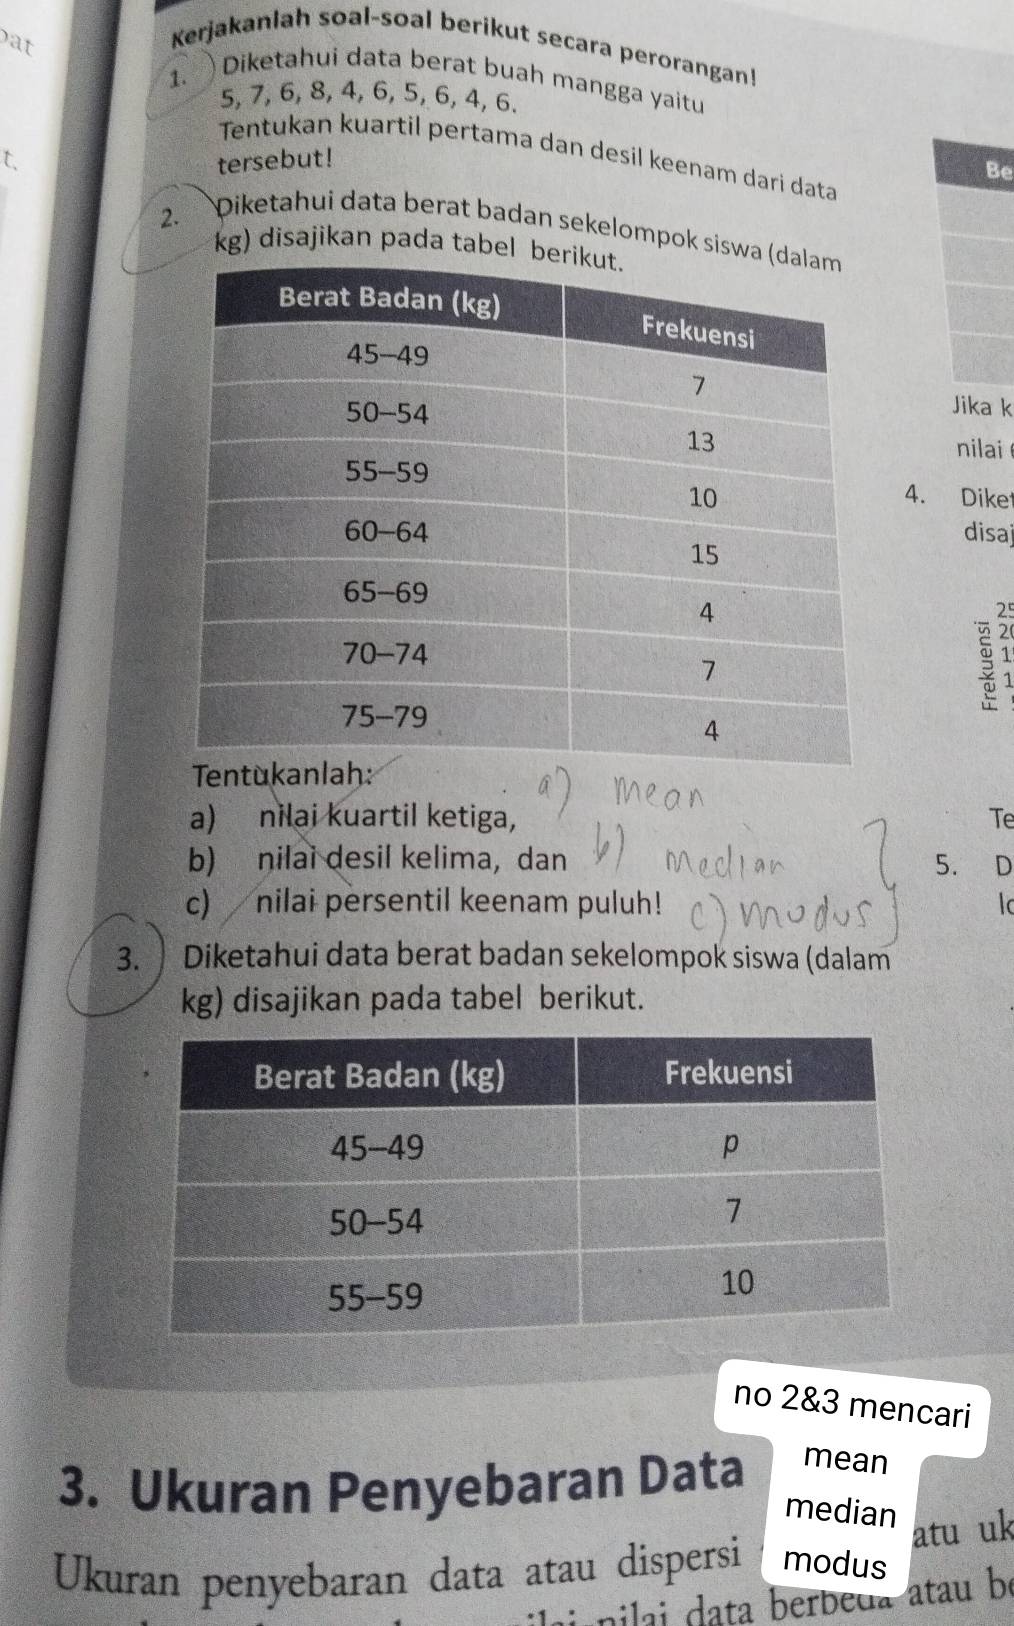 pat
t.
Kerjakanlah soal-soal berikut secara perorangan!
1. Diketahui data berat buah mangga yaitu
5, 7, 6, 8, 4, 6, 5, 6, 4, 6.
Tentukan kuartil pertama dan desil keenam dari data
tersebut!
2. Diketahui data berat badan sekelompok siswa (dalam
kg) disajikan pada tabel berikut.
Berat Badan (kg) Frekuensi
45–49 7
50–54 13
55–59 10
60–64 15
65–69 4
70–74 7
75–79 4
Tentukanlah:
a) nilai kuartil ketiga,
b) nilai desil kelima, dan
c) nilai persentil keenam puluh!
a) mean
b) median
c) modus
3. Diketahui data berat badan sekelompok siswa (dalam
kg) disajikan pada tabel berikut.
Berat Badan (kg) Frekuensi
45–49 p
50–54 7
55–59 10
Be
Jika k
nilai
4. Diket
disaj
Frekuensi
Te
5. D
no 2&3 mencari
mean
median
modus
3. Ukuran Penyebaran Data
Ukuran penyebaran data atau dispersi atu uk
nilai data berbeda atau be